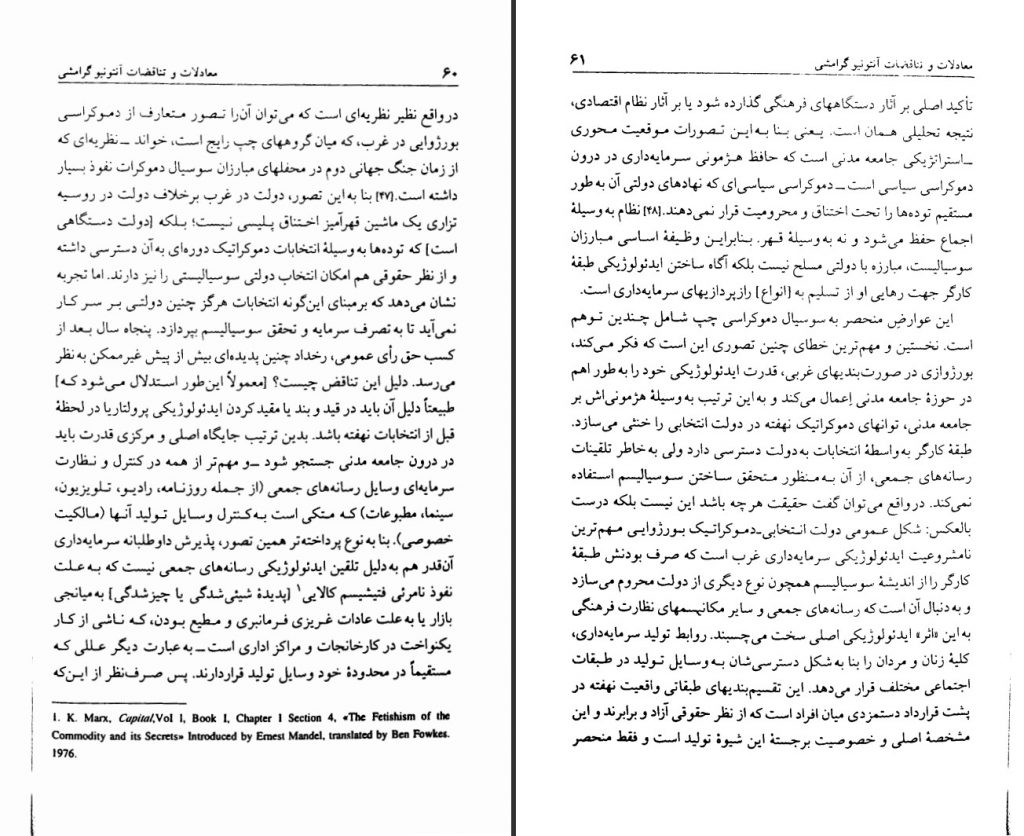 ۶۰
معادلات و تناقضات آنتونیو گرامشی
در واقع نظیر نظریه‌ای است که می‌توان آن‌را تصور متعارف از دموکراسی
بورژوایی در غرب، که میان گروههای چپ رایج است، خواند ــ نظریه‌ای که
از زمان جنگ جهانی دوم در محفلهای مبارزان سوسیال دموکرات نفوذ بسیار
داشته است.[۴۷] بنا به این تصور، دولت در غرب برخلاف دولت در روسیه
تزاری یک ماشین قهرآمیز اختناق پلیسی نیست؛ بلکه [دولت دستگاهی
است] که توده‌ها به وسیلهٔ انتخابات دموکراتیک دوره‌ای به‌آن دسترسی داشته
و از نظر حقوقی هم امکان انتخاب دولتی سوسیالیستی را نیز دارند. اما تجربه
نشان می‌دهد که برمبنای این‌گونه انتخابات هرگز چنین دولتی بر سر کار
نمی‌آید تا به تصرف سرمایه و تحقق سوسیالیسم بپردازد. پنجاه سال بعد از
کسب حق رأی عمومی، رخداد چنین پدیده‌ای بیش از پیش غیرممکن به نظر
می‌رسد. دلیل این تناقض چیست؟ [معمولاً این‌طور استدلال می‌شود که]
طبیعتاً دلیل آن باید در قید و بند یا مقید کردن ایدئولوژیکی پرولتاریا در لحظهٔ
قبل از انتخابات نهفته باشد. بدین ترتیب جایگاه اصلی و مرکزی قدرت باید
در درون جامعه مدنی جستجو شود ــ و مهم‌تر از همه در کنترل و نظارت
سرمایه‌ای وسایل رسانه‌های جمعی (از جمله روزنامه، رادیو، تلویزیون،
سینما، مطبوعات) که متکی است به‌کنترل وسایل تولید آنها (مالکیت
خصوصی). بنا به نوع پرداخته‌تر همین تصور، پذیرش داوطلبانه سرمایه‌داری
آن‌قدر هم به‌دلیل تلقین ایدئولوژیکی رسانه‌های جمعی نیست که به علت
نفوذ نامرئی فتیشیسم کالایی۱ [پدیدهٔ شیئی‌شدگی یا چیزشدگی] به میانجی
بازار یا به علت عادات غریزی فرمانبری و مطیع بودن، که ناشی از کار
یکنواخت در کارخانجات و مراکز اداری است ــ به عبارت دیگر عللی که
مستقیماً در محدودهٔ خود وسایل تولید قراردارند. پس صرف‌نظر از این‌که
1. K. Marx, Capital,Vol I, Book I, Chapter 1 Section 4, «The Fetishism of the
Commodity and its Secrets» Introduced by Ernest Mandel, translated by Ben Fowkes.
1976.
معادلات و تناقضات آنتونیو گرامشی
۶۱
تأکید اصلی بر آثار دستگاههای فرهنگی گذارده شود یا بر آثار نظام اقتصادی،
نتیجه تحلیلی همان است. یعنی بنا به‌این تصورات موقعیت محوری
ــ‌استراتژیکی جامعه مدنی است که حافظ هژمونی سرمایه‌داری در درون
دموکراسی سیاسی است ــ دموکراسی سیاسی‌ای که نهادهای دولتی آن به طور
مستقیم توده‌ها را تحت اختناق و محرومیت قرار نمی‌دهند.[۴۸] نظام به وسیلهٔ
اجماع حفظ می‌شود و نه به وسیلهٔ قهر. بنابراین وظیفهٔ اساسی مبارزان
سوسیالیست، مبارزه با دولتی مسلح نیست بلکه آگاه ساختن ایدئولوژیکی طبقهٔ
کارگر جهت رهایی او از تسلیم به [انواع] رازپردازیهای سرمایه‌داری است.
این عوارضِ منحصر به سوسیال دموکراسی چپ شامل چندین توهم
است. نخستین و مهم‌ترین خطای چنین تصوری این است که فکر می‌کند،
بورژوازی در صورت‌بندیهای غربی، قدرت ایدئولوژیکی خود را به طور اهم
در حوزهٔ جامعه مدنی اِعمال می‌کند و به این ترتیب به وسیلهٔ هژمونی‌اش بر
جامعه مدنی، توانهای دموکراتیک نهفته در دولت انتخابی را خنثی می‌سازد.
طبقهٔ کارگر به‌واسطهٔ انتخابات به دولت دسترسی دارد ولی به خاطر تلقینات
رسانه‌های جمعی، از آن به منظور متحقق ساختن سوسیالیسم استفاده
نمی‌کند. در واقع می‌توان گفت حقیقت هرچه باشد این نیست بلکه درست
بالعکس: شکل عمومی دولت انتخابی‌ـ‌دموکراتیک بورژوایی مهم‌ترین
نامشروعیت ایدئولوژیکی سرمایه‌داری غرب است که صرف بودنش طبقهٔ
کارگر را از اندیشهٔ سوسیالیسم همچون نوع دیگری از دولت محروم می‌سازد
و به دنبال آن است که رسانه‌های جمعی و سایر مکانیسمهای نظارت فرهنگی
به این «اثر» ایدئولوژیکی اصلی سخت می‌چسبند. روابط تولید سرمایه‌داری،
کلیهٔ زنان و مردان را بنا به شکل دسترسی‌شان به وسایل تولید در طبقات
اجتماعی مختلف قرار می‌دهد. این تقسیم‌بندیهای طبقاتی واقعیت نهفته در
پشت قرارداد دستمزدی میان افراد است که از نظر حقوقی آزاد و برابرند و این
مشخصهٔ اصلی و خصوصیت برجستهٔ این شیوهٔ تولید است و فقط منحصر